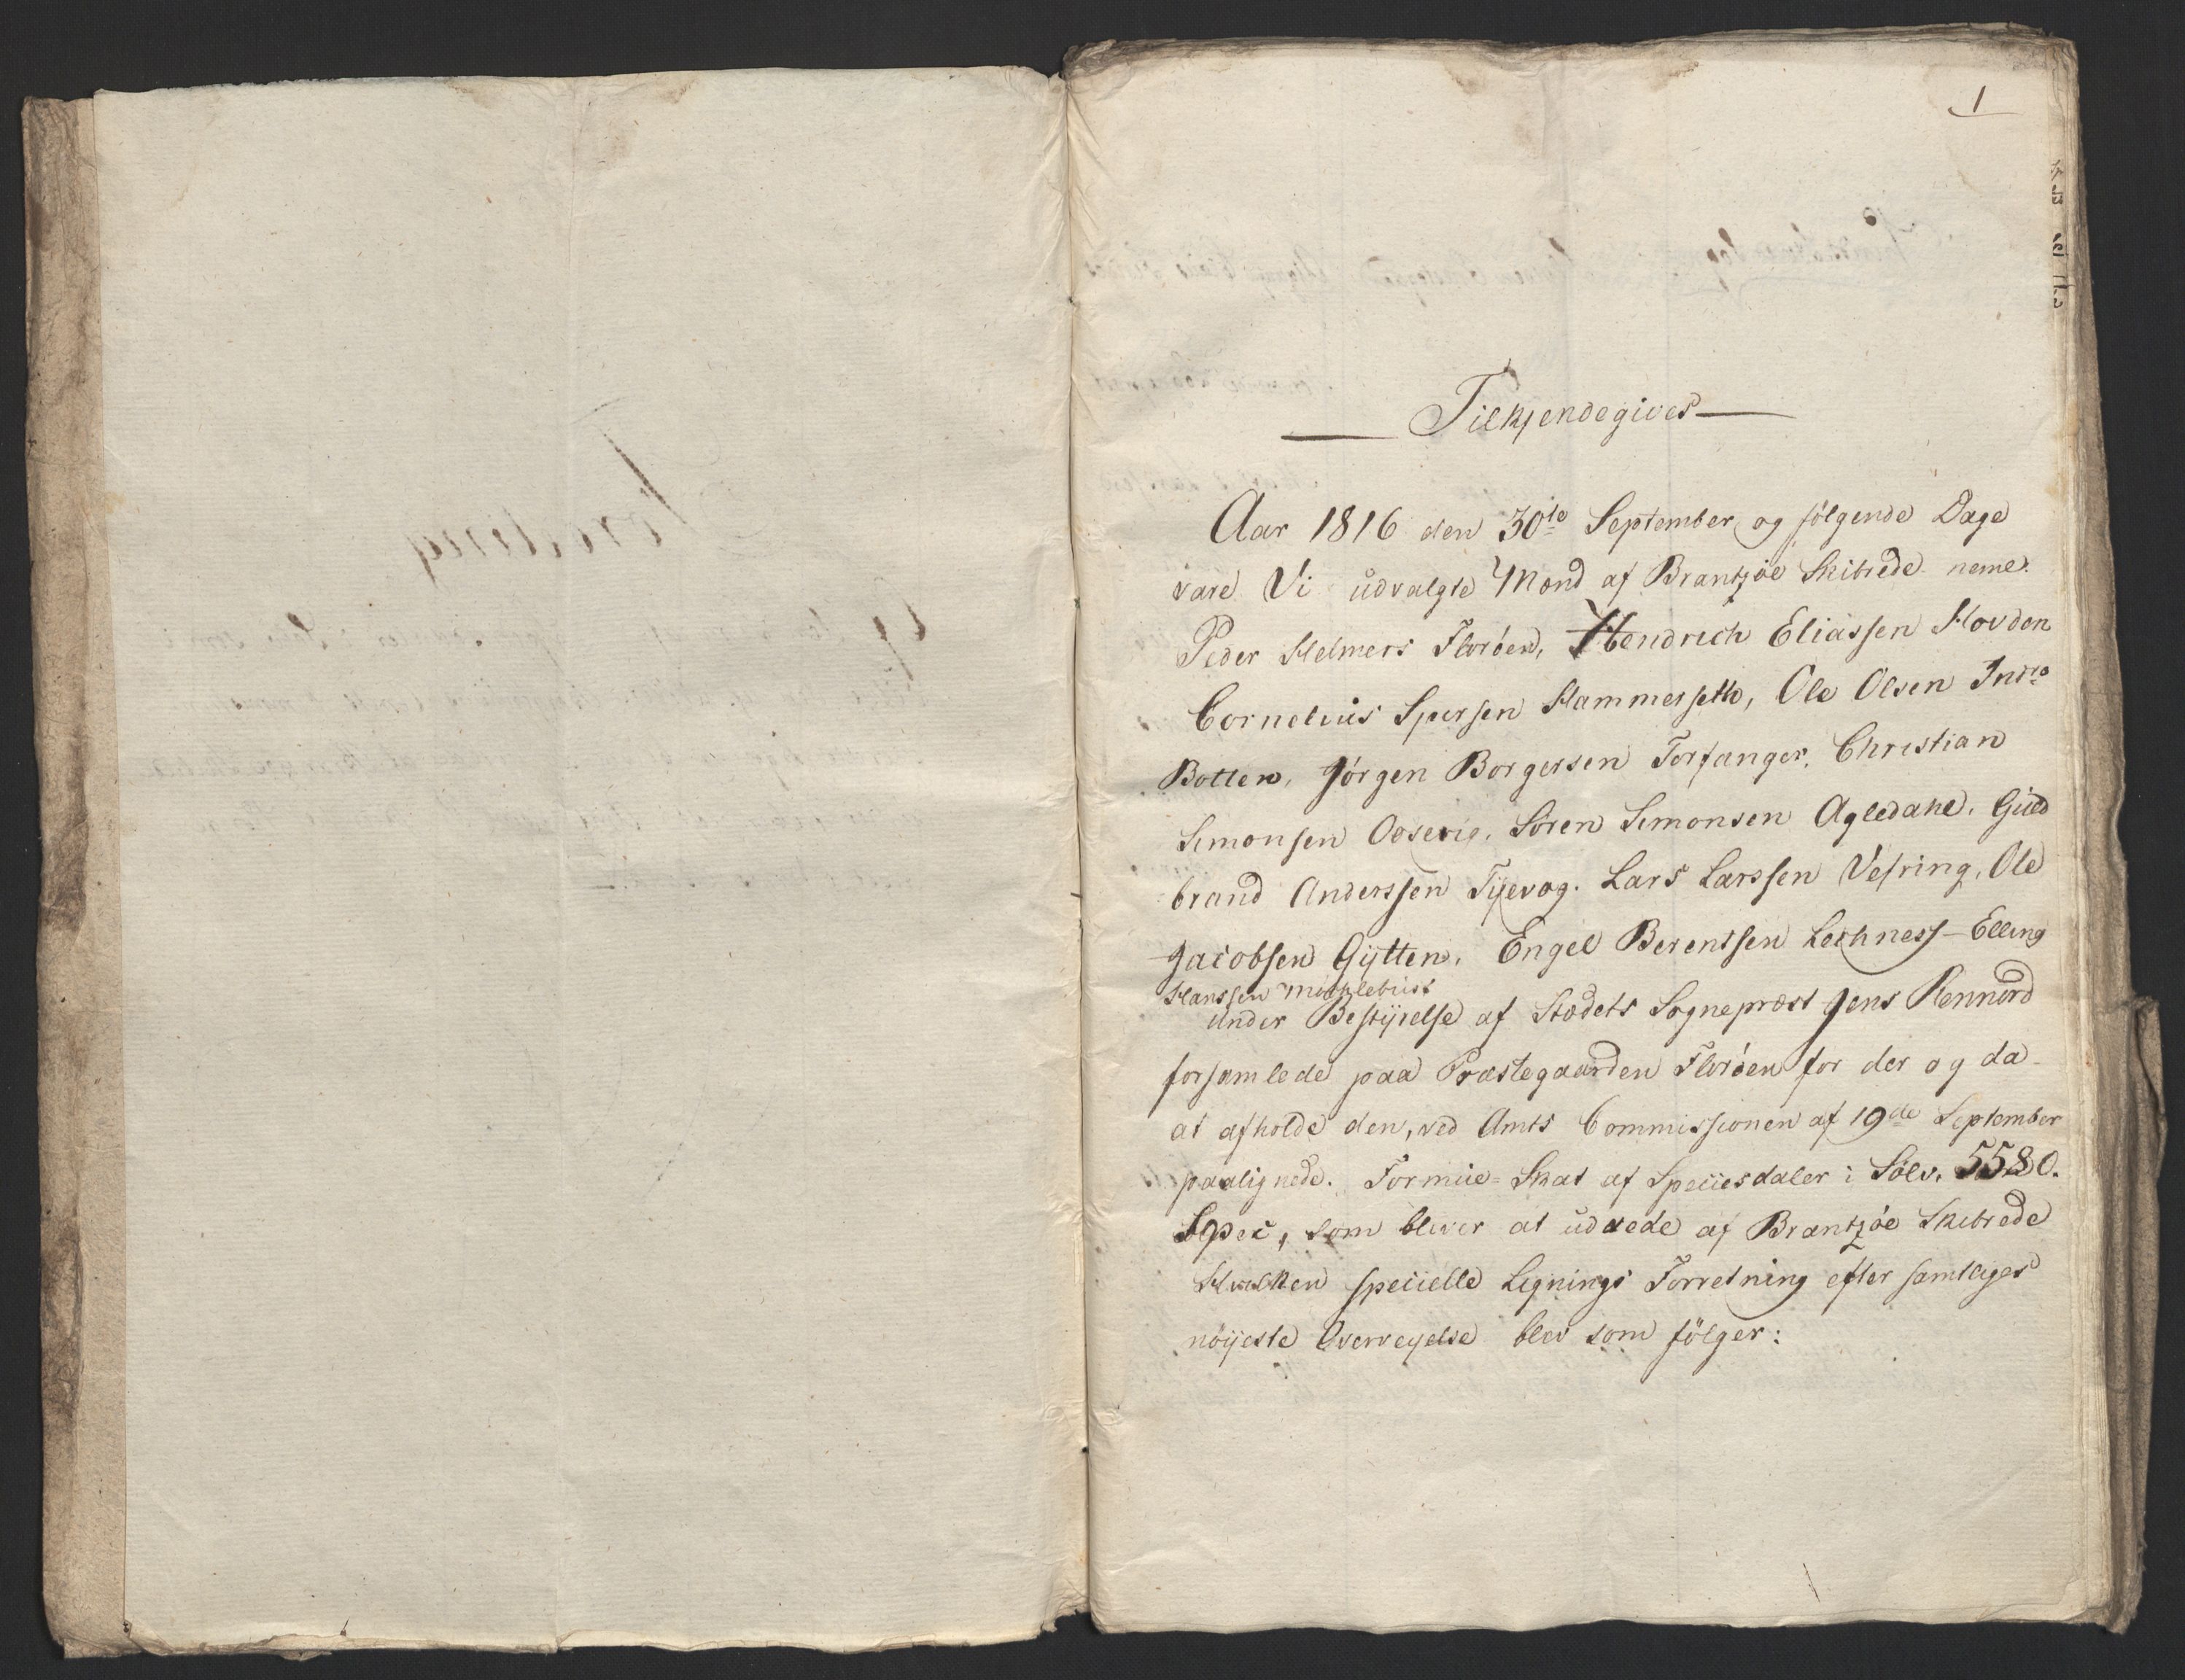 1
Tilkjendegives
Aar 1816 den 30te September og følgende Dage
vare Vi udvalgte Mænd af Brantzøe Skibrede neml:
Peder Helmers Florøen, Hendrich Eliassen Hovden
Cornelius Hammersetth, Ole Olsen Indre
Botten, Jørgen Borgersen Torfanger, Christian
Simonsen Søren Simonsen Agledahl, Guld
brand Anderssen Lars Larssen Vefring, Ole
Jacobsen Gytten, Engel Berentsen Elling
Hanssen Micklebust
under Bestyrelse af Stædets Sognepræst Jens Rennord
forsamlede paa Præstegaarden Florøen for der og da
at afholde den, ved Amts Commissionen af 19de September
paalignede. Formue-Skat af Speciesdaler i Sølv. 5580.
Spec, som bliver at udrede af Brantzøe Skibrede
Hvilken specielle Lignings Forretning efter samtliges
nøyeste Overveyelse blev som følger: